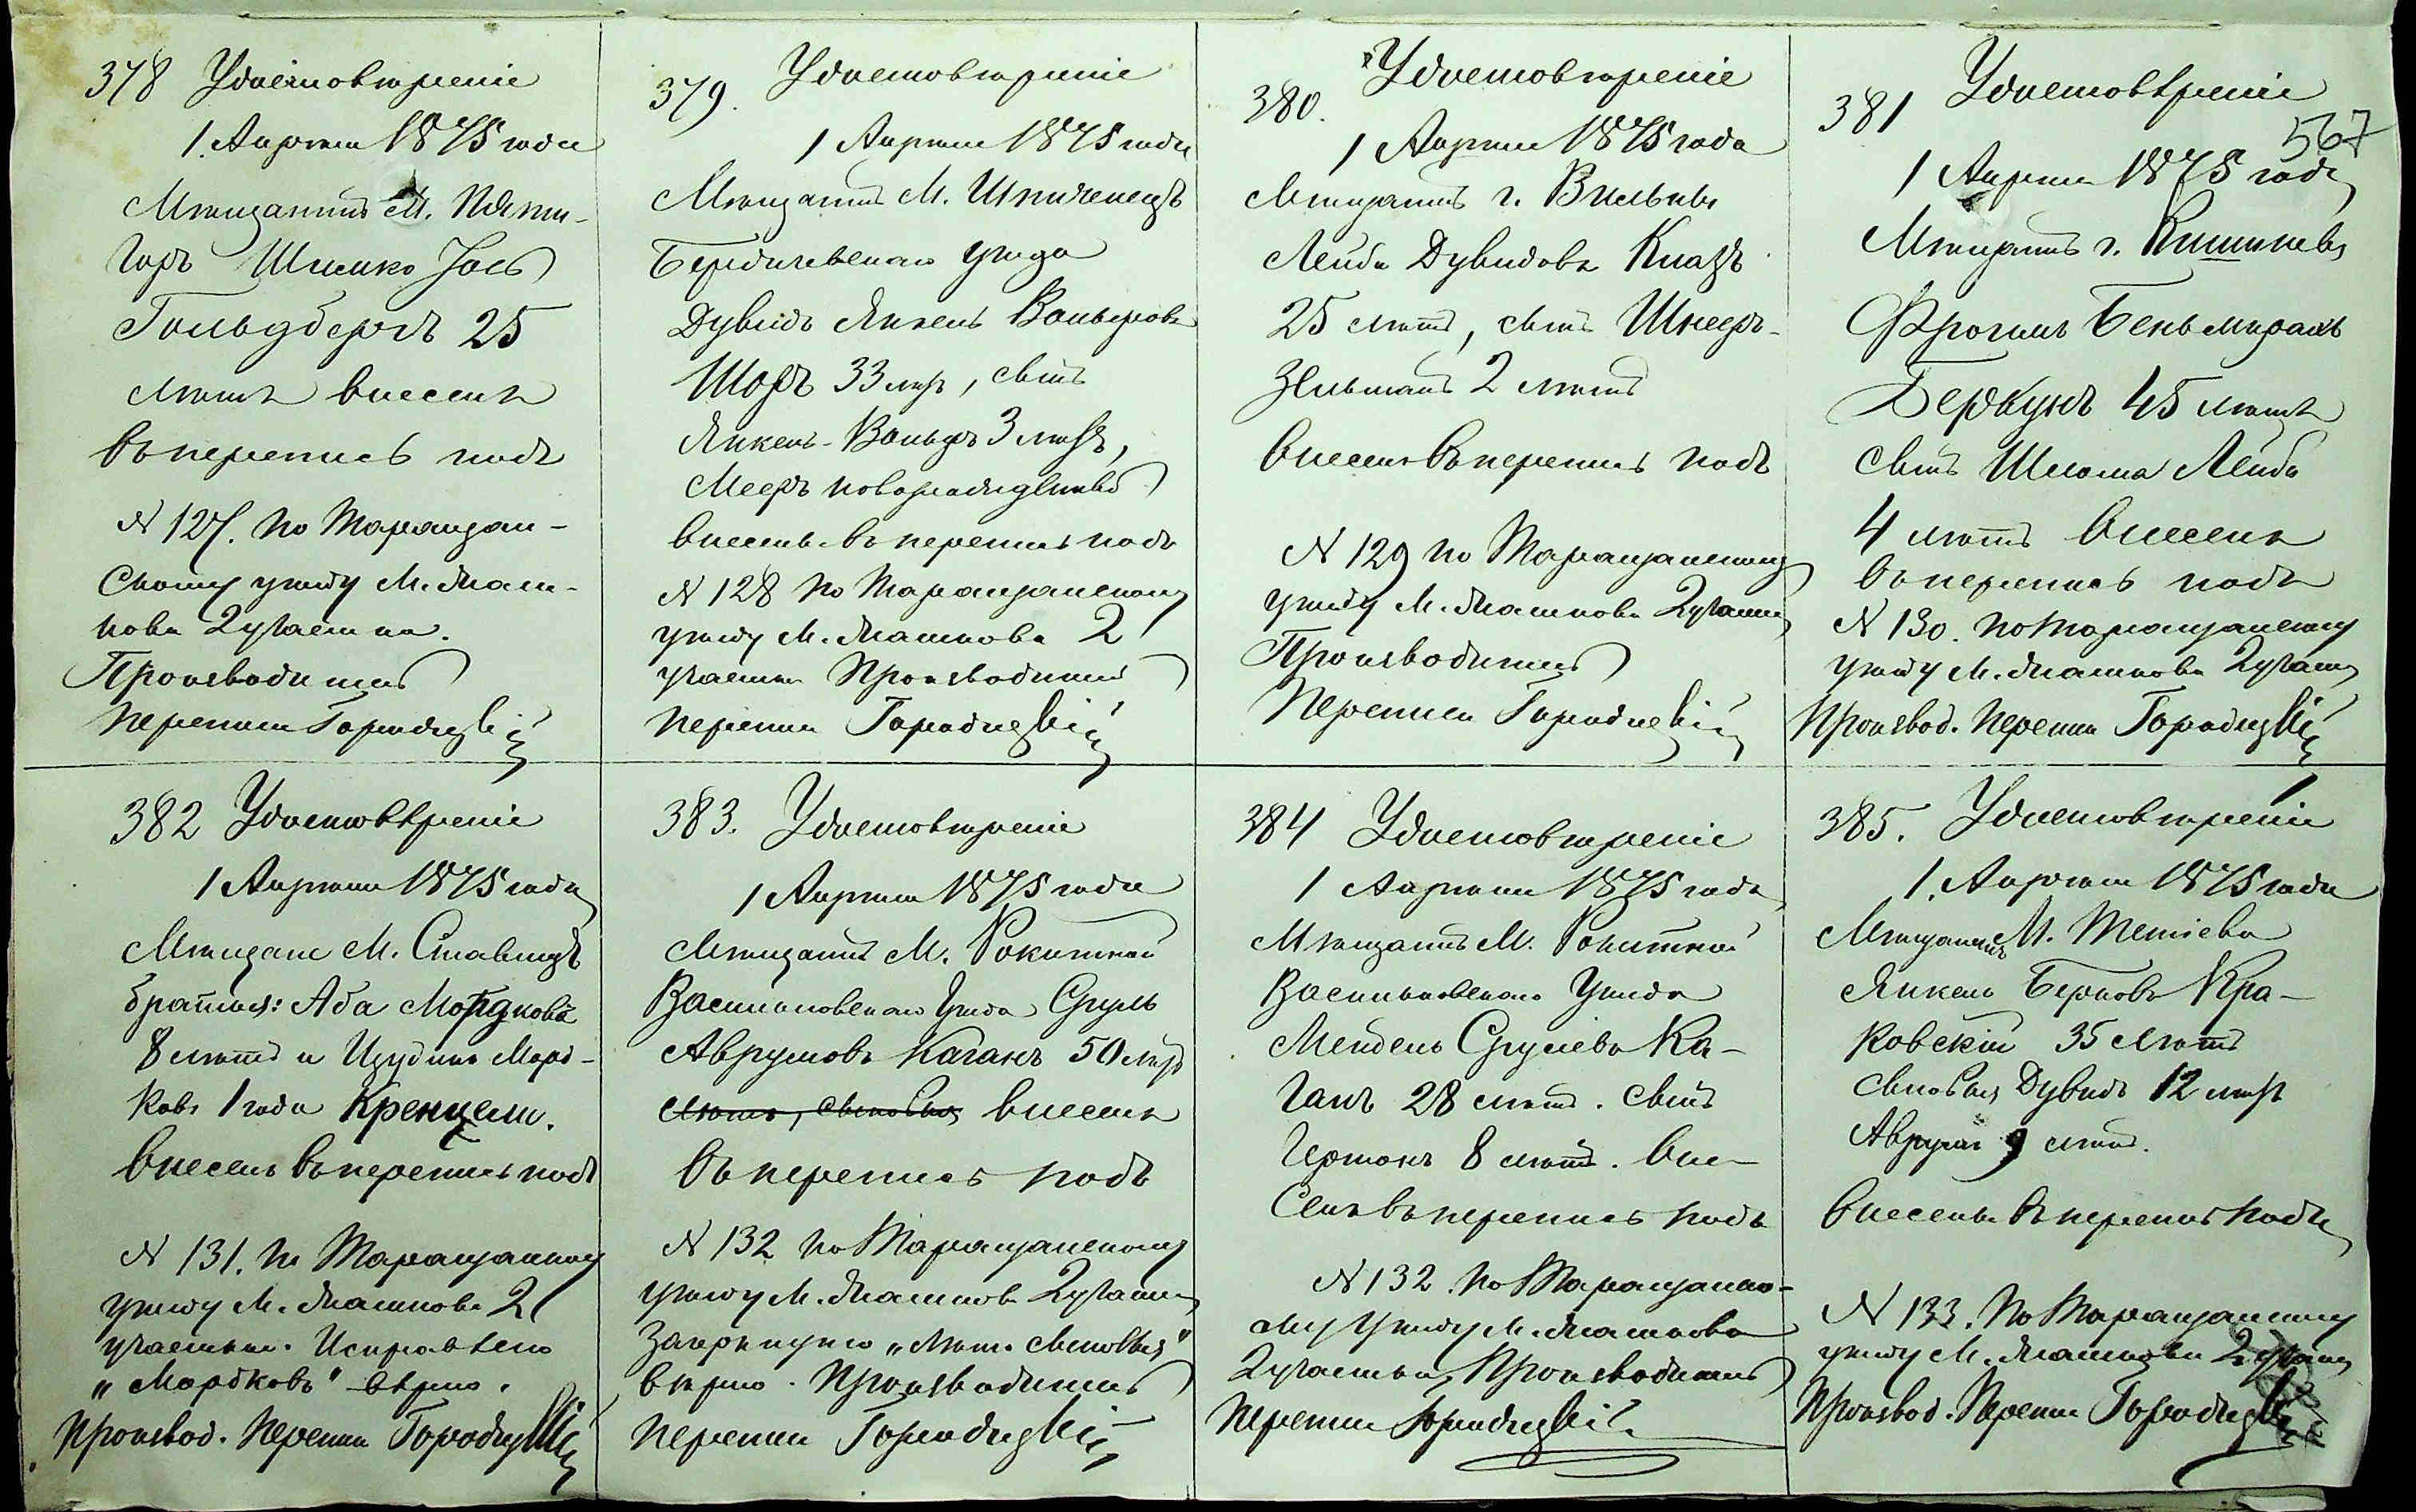 378 Удостовѣреніе
1. Апрѣля 1875 года
Мѣщанинъ М. Пяти-
горъ Шмилко Іось
Гольдбергъ 25
лѣтъ внесенъ
въ перепись подъ
№ 127. по Таращан-
скому уѣзду М. Пяти-
Производитель
Переписи Городецкій
379. Удостовѣреніе
1 Апрѣля 1875 года
Мѣщанинъ М. Шпиченецъ
Бердичевскаго уѣзда
Дувидъ Янкель Вольфовъ
Шоръ 33 лѣтъ, сынъ
Янкель-Вольфъ 3 лѣтъ,
Мееръ новорожденный
внесены въ перепись подъ
№ 128 по Таращанскому
уѣзду М. 2
участка Производитель
переписи Городецкій
380. Удостовѣреніе
1 Апрѣля 1875 года
Мѣщанинъ г. Вильны
Лейба Дувидовъ Кназъ
25 лѣтъ, сынъ Шнееръ-
Зельманъ 2 лѣтъ
внесены въ перепись подъ
№ 129 по Таращанскому
уѣзду М. 2 участка
Производитель
Переписи Городецкій
381 Удостовѣреніе
567
1 Апрѣля 1875 года
Мѣщанинъ г. Кишинева
Фроимъ Беньминовъ
Беркунъ 45 лѣтъ
сынъ Шлома Лейба
4 лѣтъ внесенъ
въ перепись подъ
№ 130. по Таращанскому
уѣзду М. 2 участка
Производ. Переписи Городецкій
382 Удостовѣреніе
1 Апрѣля 1875 года
Мѣщане М. Ставищъ
братья: Аба Мордковъ
8 лѣтъ и Морд-
ковъ 1 года Кренцель.
внесены въ перепись подъ
№ 131. по Таращанскому
уѣзду М. 2
участка. Исправлено
„Мордковъ" вѣрно.
Производ. Переписи Городецкій
383. Удостовѣреніе
1 Апрѣля 1875 года
Мѣщанинъ М. Рокитной
Васильковскаго уѣзда Сруль
Аврумовъ Каганъ 50 лѣтъ
лѣтъ, сыновья внесенъ
въ перепись подъ
№ 132 по Таращанскому
уѣзду М. 2 участка
Зачеркнуто „лѣтъ сыновья"
вѣрно. Производитель
переписи Городецкій
384 Удостовѣреніе
1 Апрѣля 1875 года
Мѣщанинъ М. Рокитной
Васильковскаго Уѣзда
Мендель Срулевъ Ка-
ганъ 28 лѣтъ. сынъ
Гершонъ 8 лѣтъ. вне-
сенъ въ перепись подъ
№ 132. по Таращанско-
му Уѣзду М.
2 участка, Производитель
Переписи Городецкій
385. Удостовѣреніе
1. Апрѣля 1875 года
Мѣщанинъ М. Тетіева
Янкель Берковъ Кра-
ковскій 35 лѣтъ
сыновья Дувидъ 12 лѣтъ
Аврумъ 9 лѣтъ.
внесены въ перепись подъ
№ 133. по Таращанскому
уѣзду М. 2 участка
Производ. Переписи Городецкій